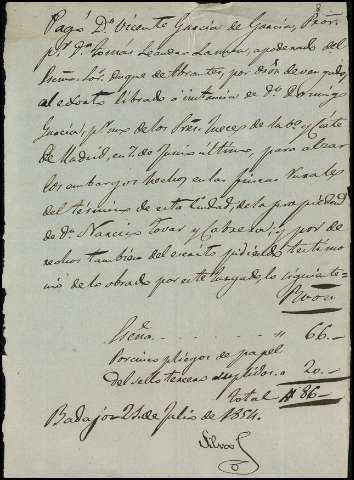 Pagó Dn Vicente Garcia de Garcia, Pror.
pr. Dn Tomás Leandro apoderado del
Escmo. Sor. Duque de Abrantes, por dros. devengados
al exorto librado á instancia de Dn Domingo
Garcia, pr. uno de los Sres. Jueces de la Va. y Corte
de Madrid, en 7 de Junio último, para alzar
los embargos hechos en las fincas rurales
del término de esta Ciudad, de la propiedad
de Dn Narciso Tovar y Cabrera; y por de
rechos tambien del escrito pidiendo testimo
nio de lo obrado por este Juzgado, lo siguiente=
Rvon
66.—
Por cinco pliegos de papel
del sello tercero suplidos. 20.—
Total 86—
Badajoz 21 de Julio de 1854.
Silva